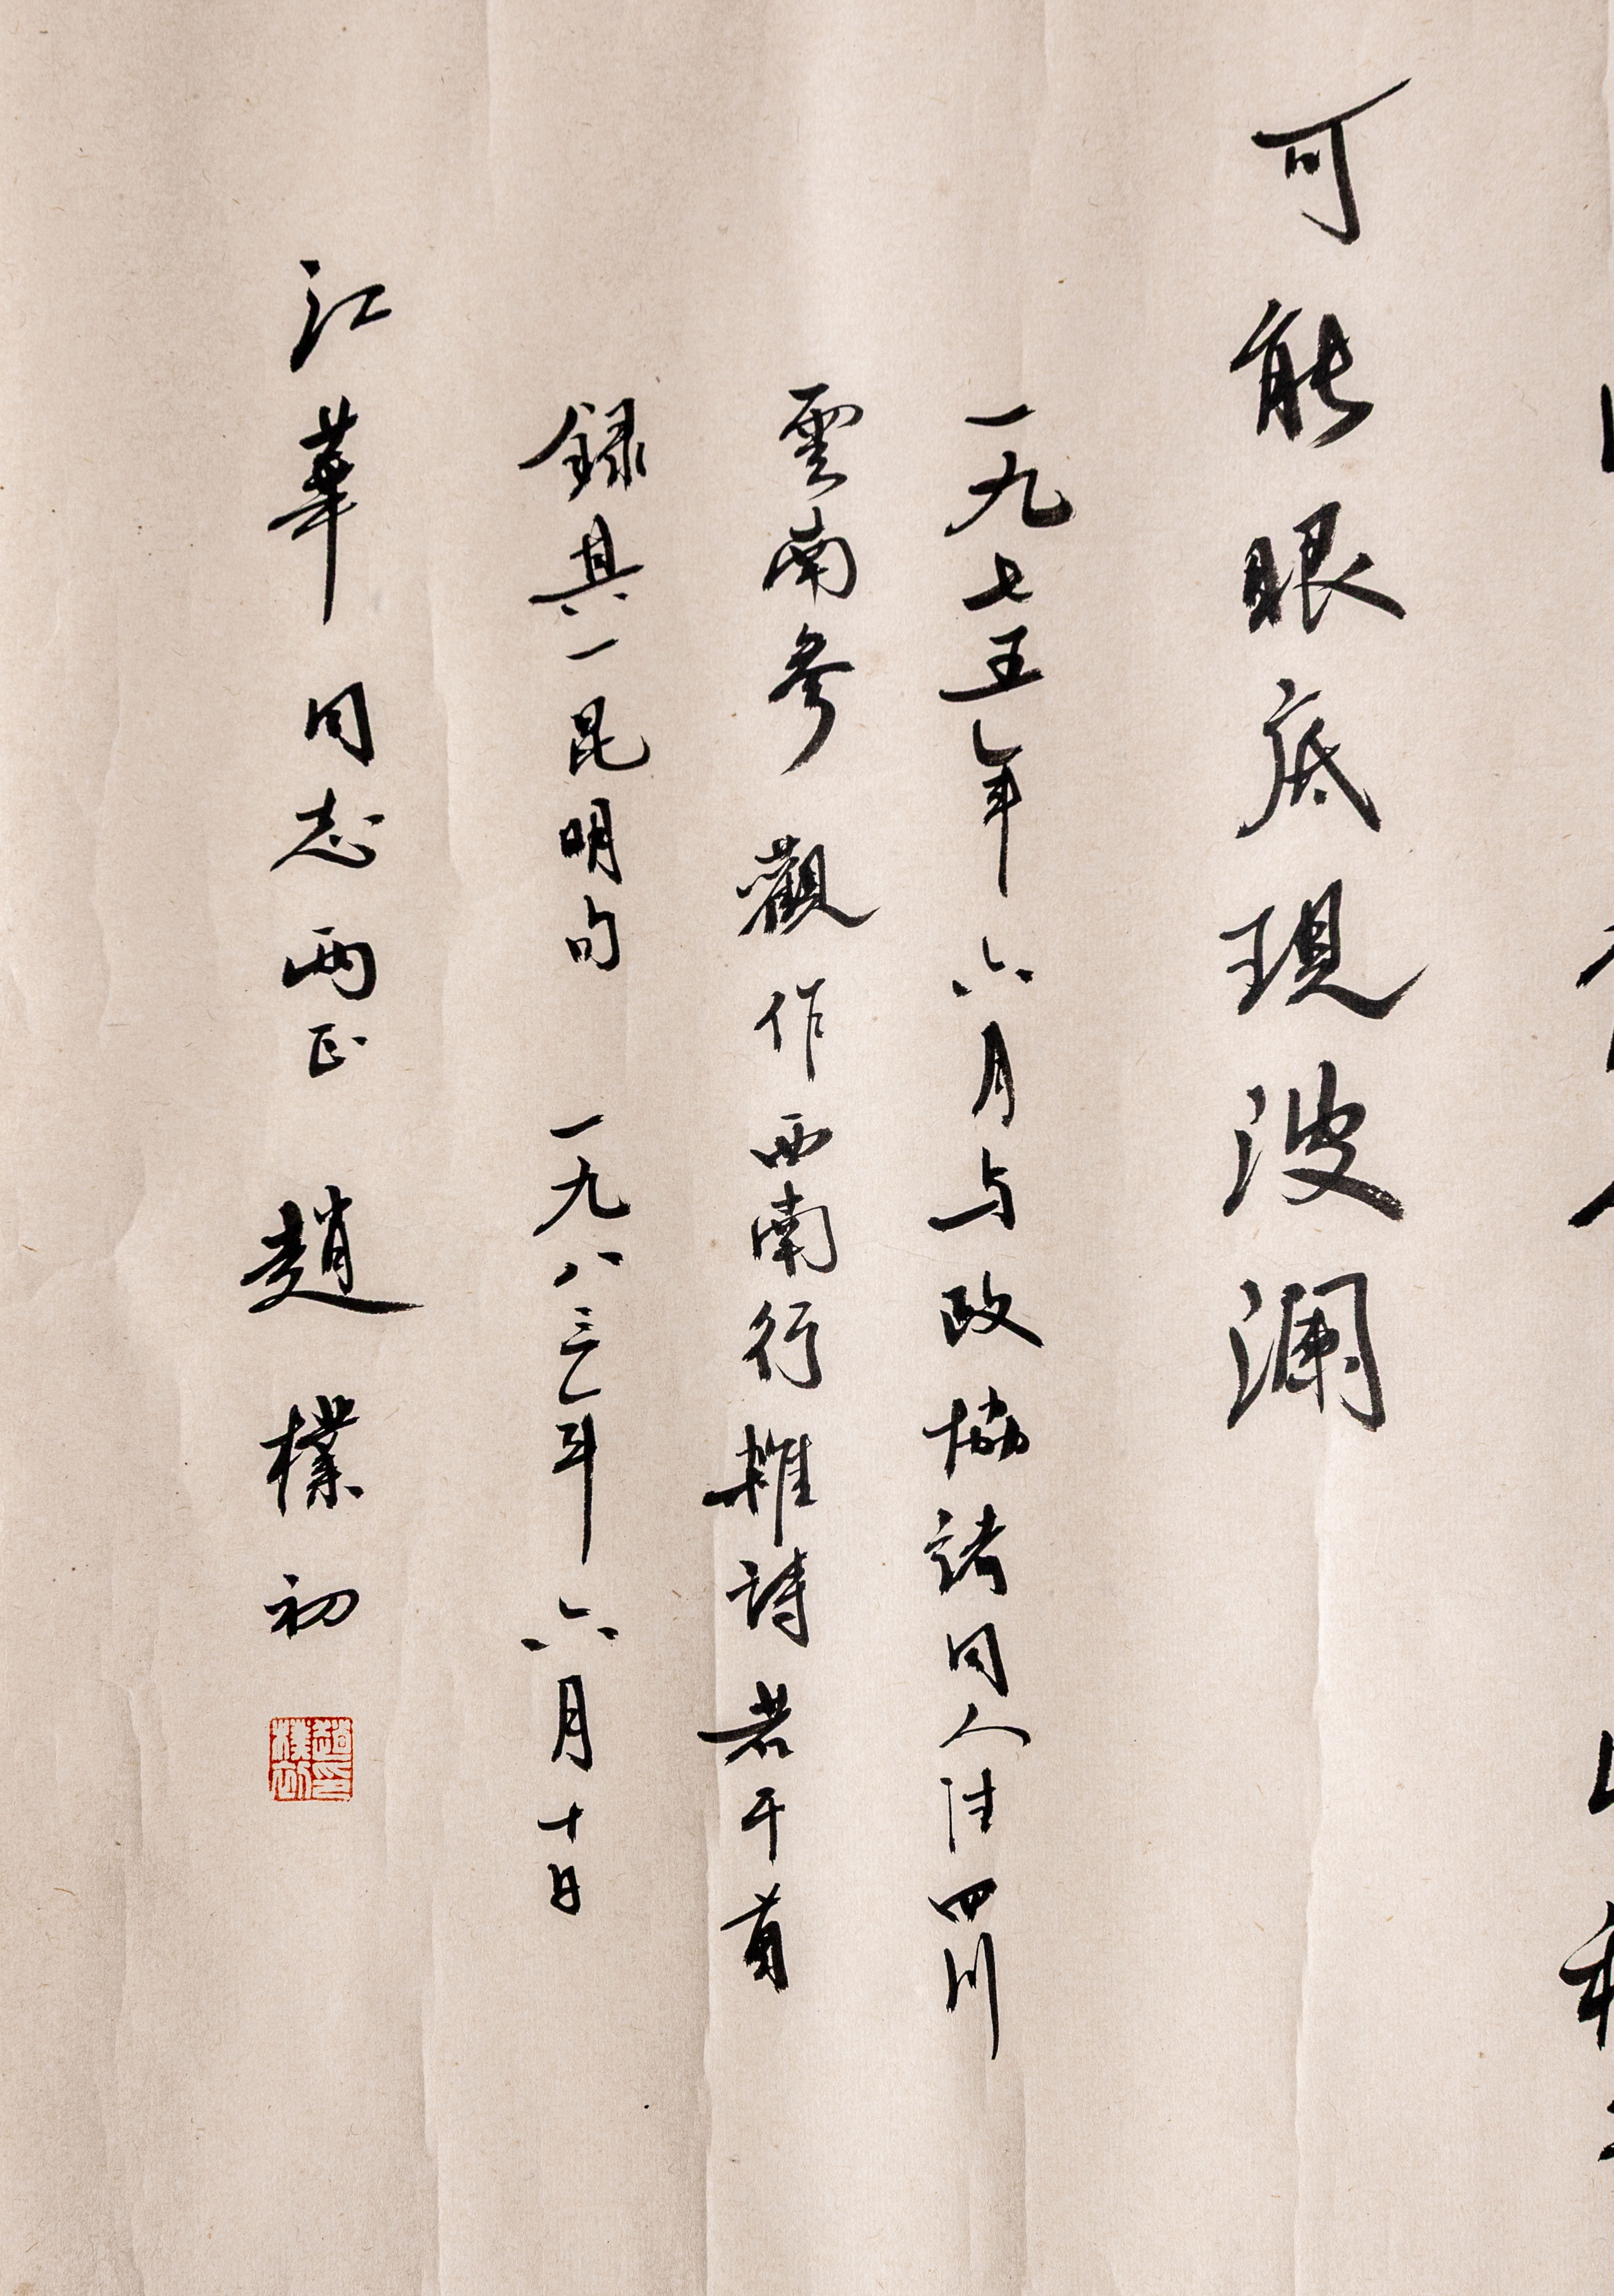 可能眼底現波澜
一九七五年六月与政協諸同人往四川
雲南參觀作西南行雜詩若干首
録其一昆明句 一九八三年六月十日
江華同志两正 趙樸初
趙樸初印